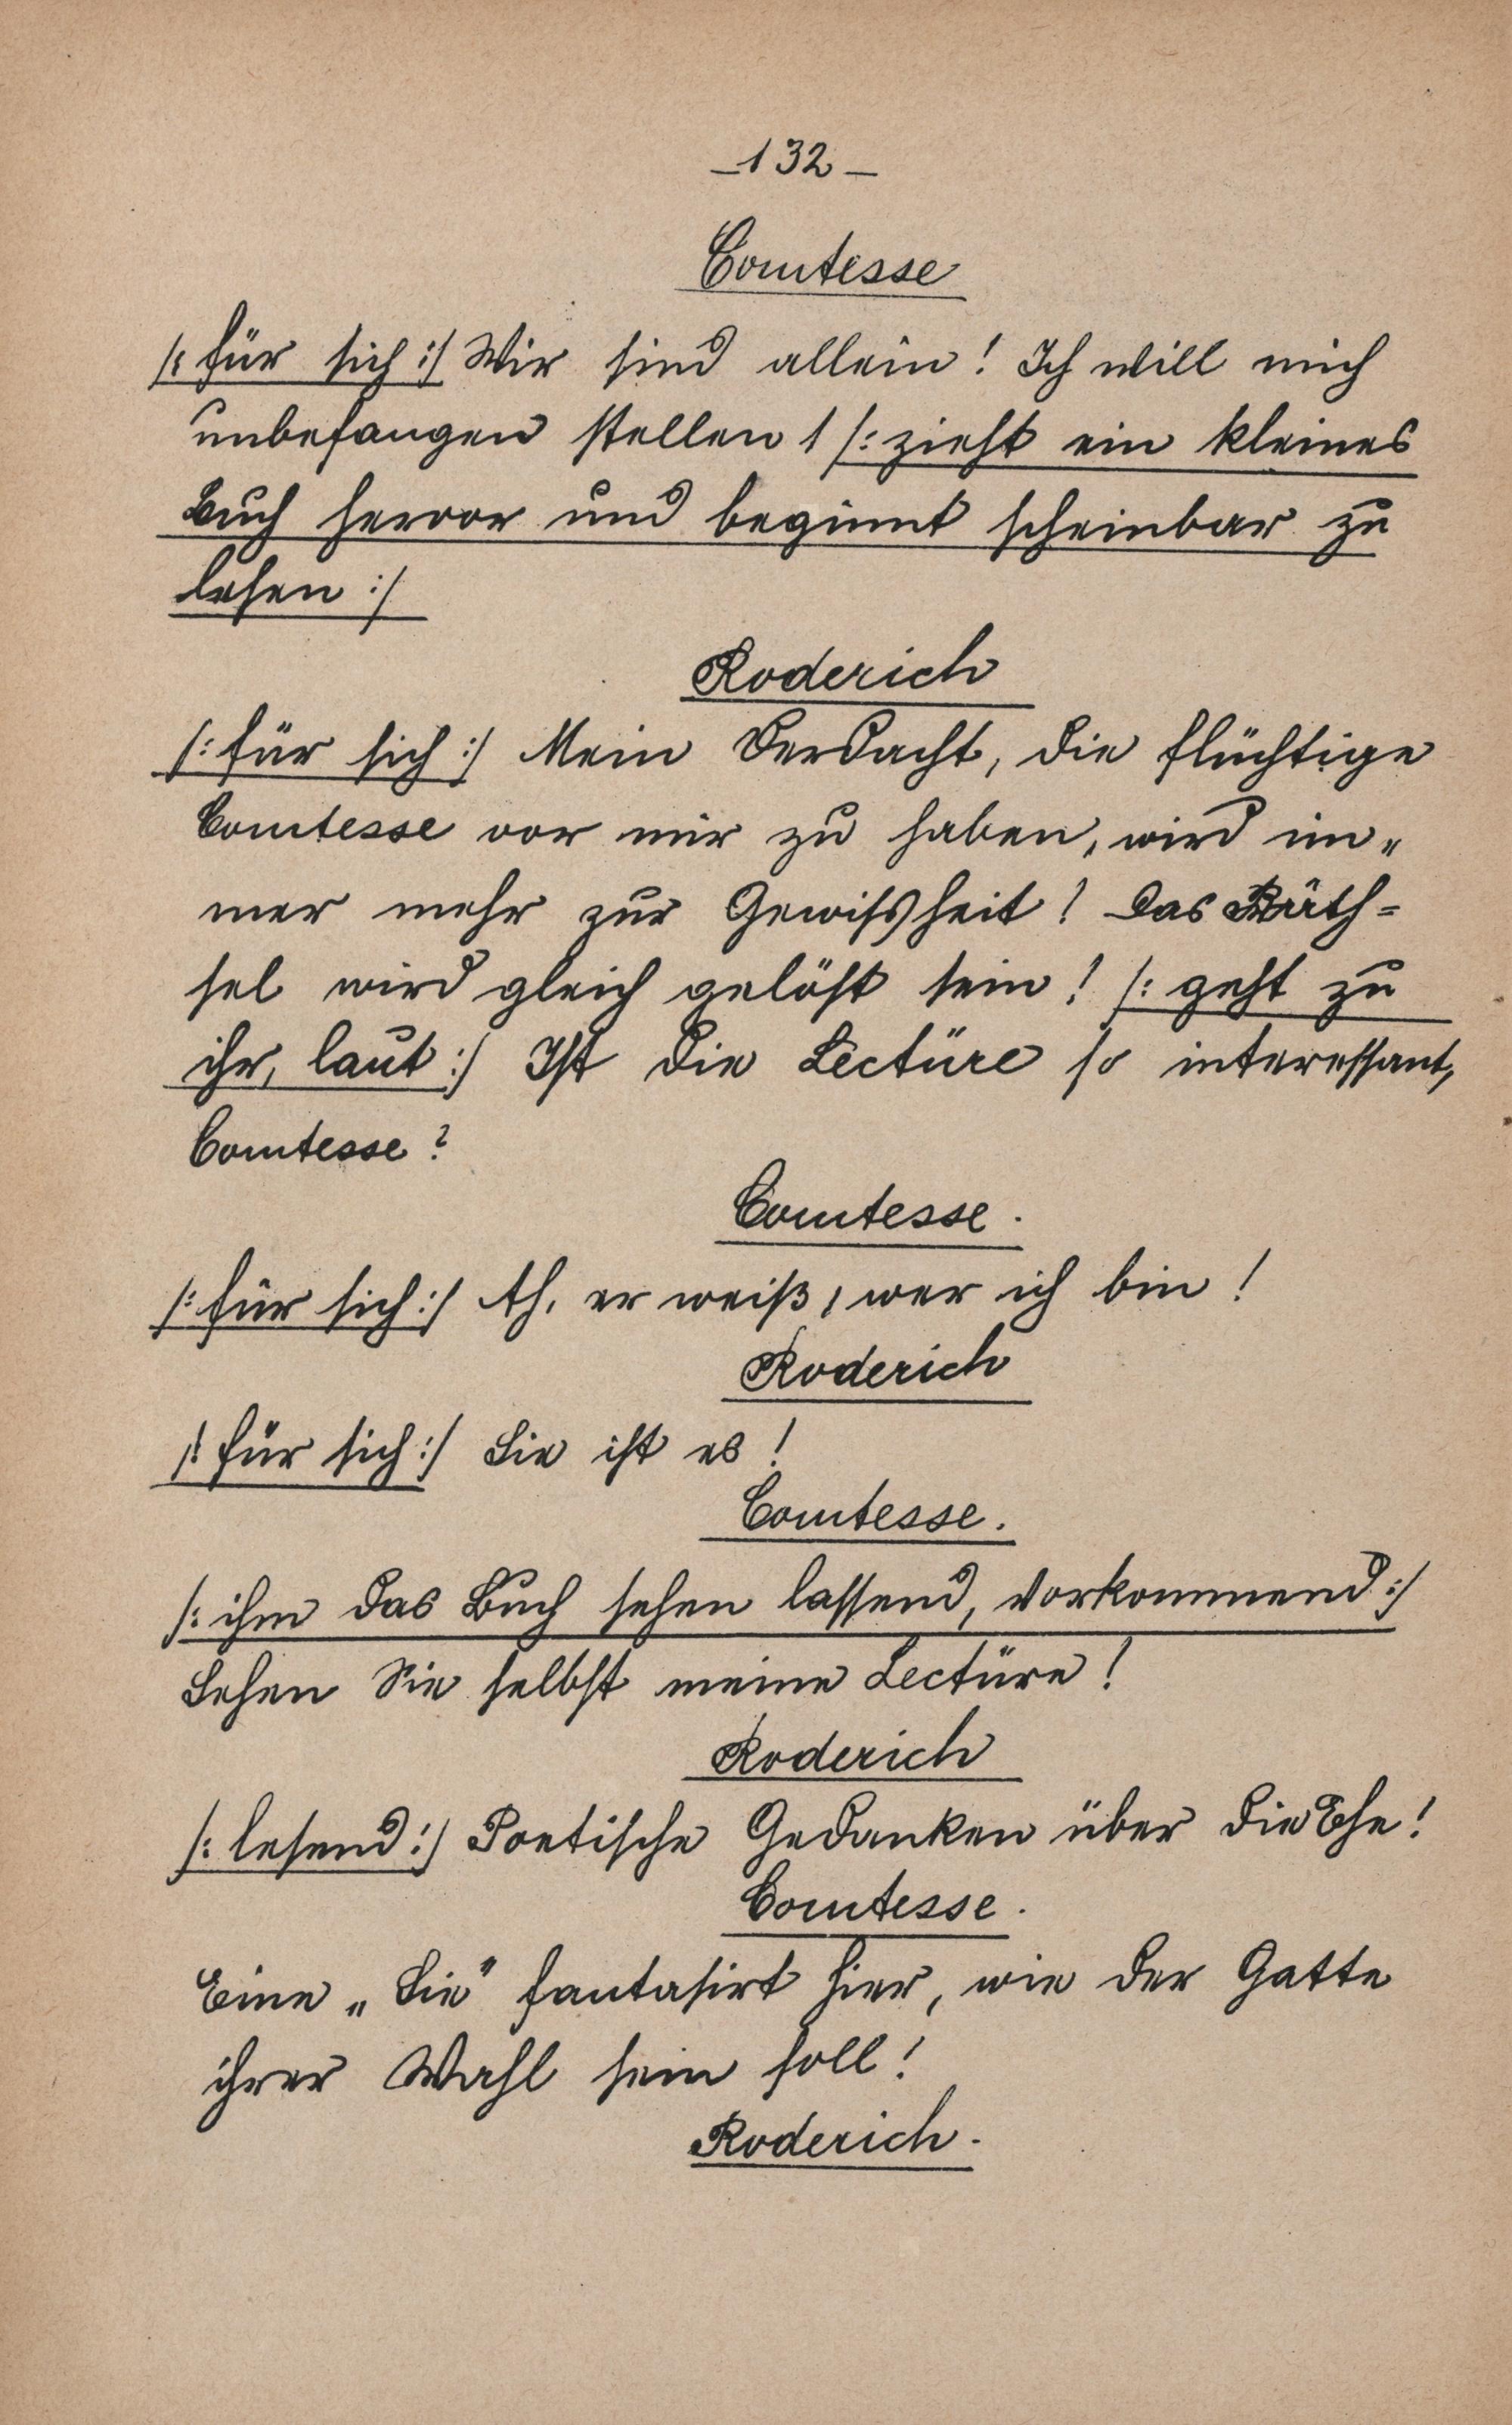 –132–
Comtesse
/: für sich :/ Wir sind allein! Ich will mich
unbefangen stellen! /: zieht ein kleines
Buch hervor und beginnt scheinbar zu
lesen :/
Roderich
/: für sich :/ Mein Verdacht, die flüchtige
Comtesse vor mir zu haben, wird im„
mer mehr zur Gewißheit! Das Räth=
sel wird gleich gelöst sein! /: geht zu
ihr, laut :/ Ist die Lectüre so interessant,
Comtesse?
Comtesse.
/: für sich :/ Ah, er weiß, wer ich bin!
Roderich
/: für sich :/ Sie ist es!
Comtesse.
/: ihm das Buch sehen lassend, vorkommend :/
Sehen Sie selbst meine Lectüre!
Roderich
/: lesend :/ Poetische Gedanken über die Ehe!
Comtesse.
Eine „Sie" fantasirt hier, wie der Gatte
ihrer Wahl sein soll!
Roderich.